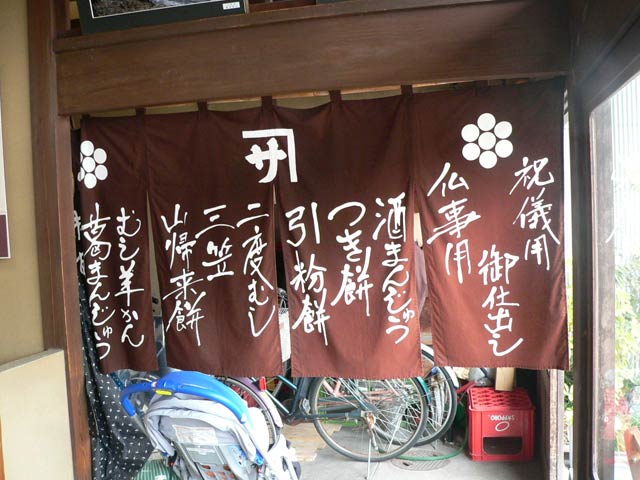 祝儀用
仏事用
御仕出し
酒まんじゅう
つき餅
引粉餅
サ
二度むし
三笠
山帰来餅
むし羊かん
葛まんじゅう
SAPPORO